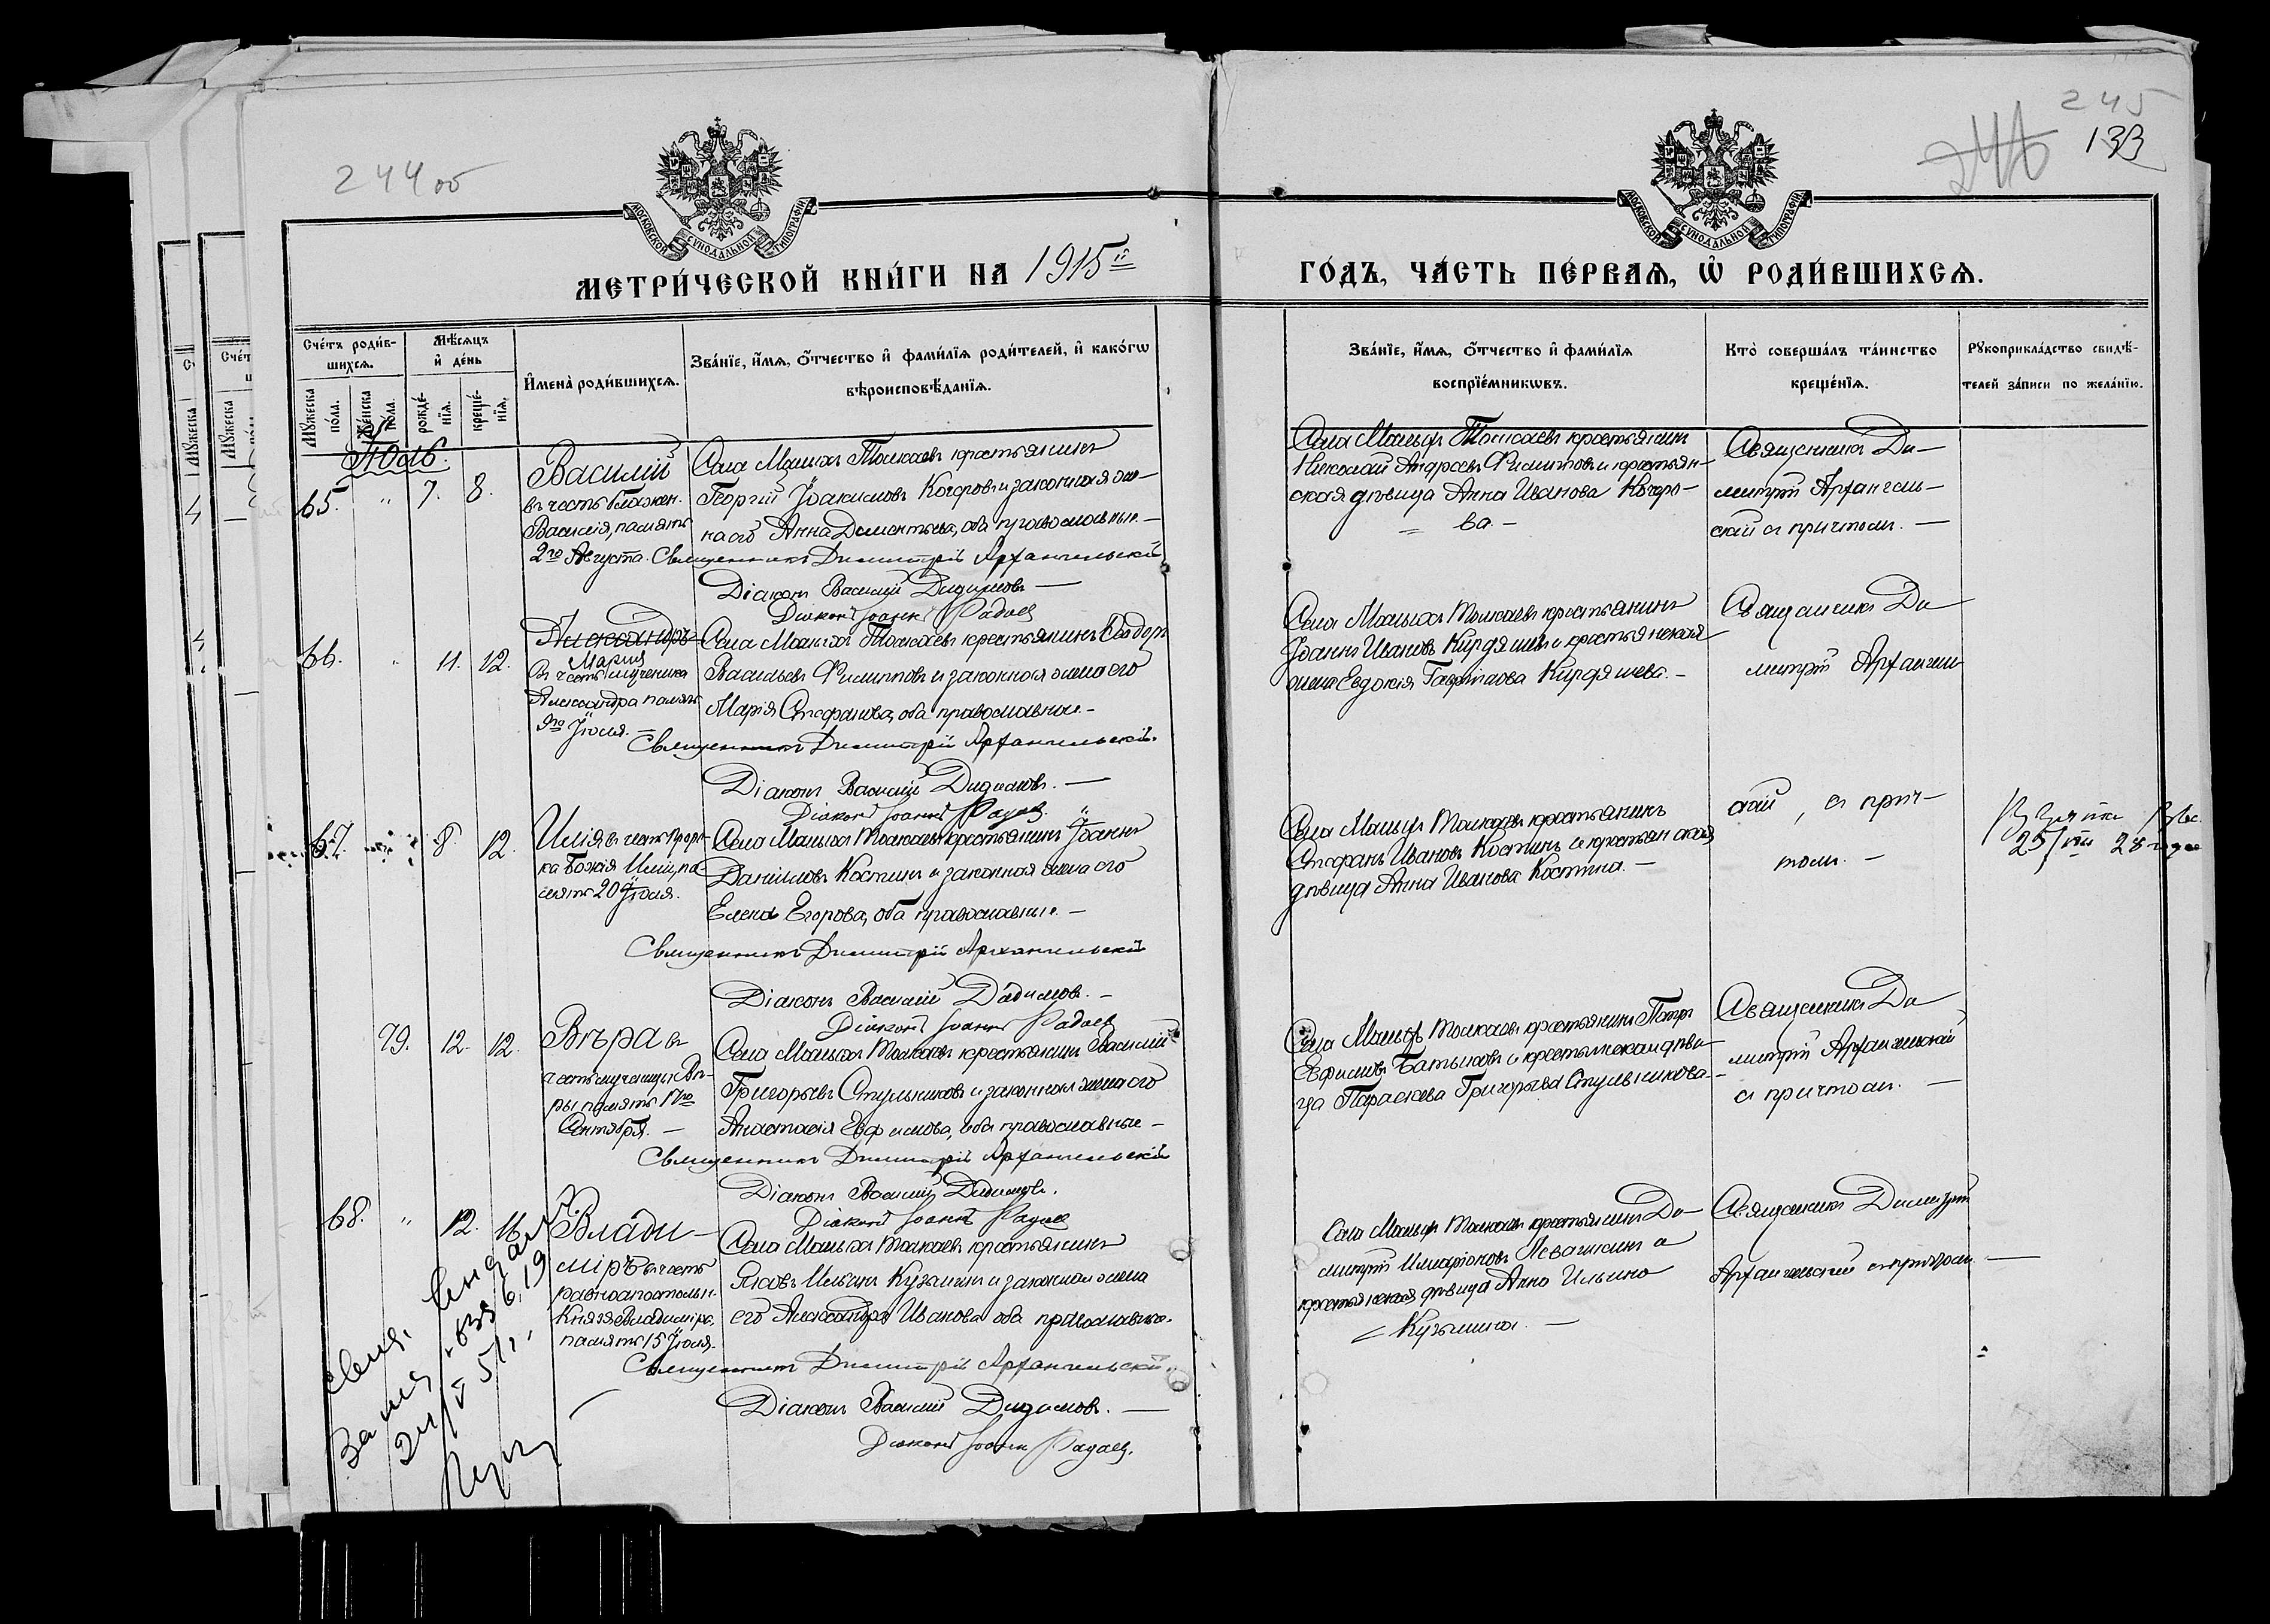 244 об
245
133
МОСКОВСКОЙ СѴНОДАЛЬНОЙ ТИПОГРАФІИ
МОСКОВСКОЙ СѴНОДАЛЬНОЙ ТИПОГРАФІИ
МЕТРИ́ЧЕСКОЙ КНИ́ГИ НА 1915й
ГО́ДЪ, ЧА́СТЬ ПЕ́РВАѦ, Ѡ҆ РОДИ́ВШИХСѦ.
Сче́тъ роди́в-
шихсѧ.
Мѣ́сѧцъ
и҆ де́нь
И҆мена̀ роди́вшихсѧ.
Зва́нїе, и҆́мѧ, ѻ҆́тчество и҆ фами́лїѧ роди́телей, и҆ како́гѡ
вѣроисповѣ́данїѧ.
Мꙋ́жеска
по́ла.
Же́нска
по́ла.
рожде́-
нїѧ.
креще́-
нїѧ.
Зва́нїе, и҆́мѧ, ѻ҆́тчество и҆ фами́лїѧ
воспрїе́мникѡвъ.
Кто̀ соверша́лъ та́инство
креще́нїѧ.
Рꙋкоприкла́дство свидѣ́-
телей за́писи по жела́нїю.
Іюль.
65. " 7. 8.
Василій
въ честь блажен.
Василія, память
2го Августа.
Села Малыхъ Толкаевъ крестьянинъ
Георгій Іоакимовъ Кочфовъ и законная же-
на его Анна Дементьева, оба православные. —
Священникъ Димитрій Архангельскій
Діаконъ Василій Дидимовъ —
Діаконъ Іоаннъ Радаев
Села Малыхъ Толкаевъ крестьянинъ
Николай Андреевъ Филиповъ и крестьян-
ская дѣвица Анна Иванова
= ва. —
Священникъ Ди-
митрій Архангель-
скій съ причтомъ. —
66. " 11. 12.
Александръ
Мария
Въ честь мученика
Александра память
9го Іюля. —
Села Малыхъ Толкаевъ крестьянинъ Ѳеодоръ
Васильевъ Филипповъ и законная жена его
Марія Стефанова, оба православные. —
Священникъ Димитрій Архангельскій.
Діаконъ Василій Дидимовъ. —
Діаконъ Іоаннъ Радаев.
Села Малыхъ Толкаевъ крестьянинъ
Іоаннъ Ивановъ Кирдяшевъ и крестьянская
жена Евдокія Гавріилова Кирдяшева. —
Священникъ Ди
митрій Архангель
67. 8 12.
Илія въ честь Проро-
ка Божія Иліи, па-
мять 20 Іюля.
Села Малыхъ Толкаевъ крестьянинъ Іоаннъ
Даніиловъ Костинъ и законная жена его
Елена Егорова, оба православные. —
Священникъ Димитрій Архангельскій
Діаконъ Василій Дидимовъ. —
Діаконъ Іоаннъ Радаев
Села Малыхъ Толкаевъ крестьянинъ
Стефанъ Ивановъ Костинъ и крестьянская
дѣвица Анна Иванова Костина. —
скій, съ прич-
томъ. —
25/VII 28 года
79. 12. 12.
Вѣра въ
честь мученицы Вѣ-
ры память 17го
Сентября. —
Села Малыхъ Толкаевъ крестьянинъ Василій
Григорьевъ Стульниковъ и законная жена его
Анастасія Евфимова, оба православные —
Священникъ Димитрій Архангельскій
Діаконъ Василій Дидимовъ.
Діаконъ Іоаннъ Радаев
Села Малыхъ Толкаевъ крестьянинъ Петръ
Евфимовъ Батыновъ и крестьянская дѣви-
ца Параскева Григорьева Стульникова —
Священникъ Ди
митрій Архангельскій
съ причтомъ. —
68. " 12. 16.
Влади-
міръ въ честь
равноапостольн.
Князя Владиміра,
память 15 Іюля.
Села Малыхъ Толкаевъ крестьянинъ
Яковъ Ильинъ Кузминъ и законная жена
его Александра Иванова оба православные.
Священникъ Димитрій Архангельскій.
Діаконъ Василій Дидимовъ. —
Діаконъ Іоаннъ Радаев.
Села Малыхъ Толкаевъ крестьянинъ Ди-
митрій Иларіоновъ Левашкинъ и
крестьянская дѣвица Анна Ильина
= Кузьмина. —
Священникъ Димитрій
Архангельскій съ причтомъ —